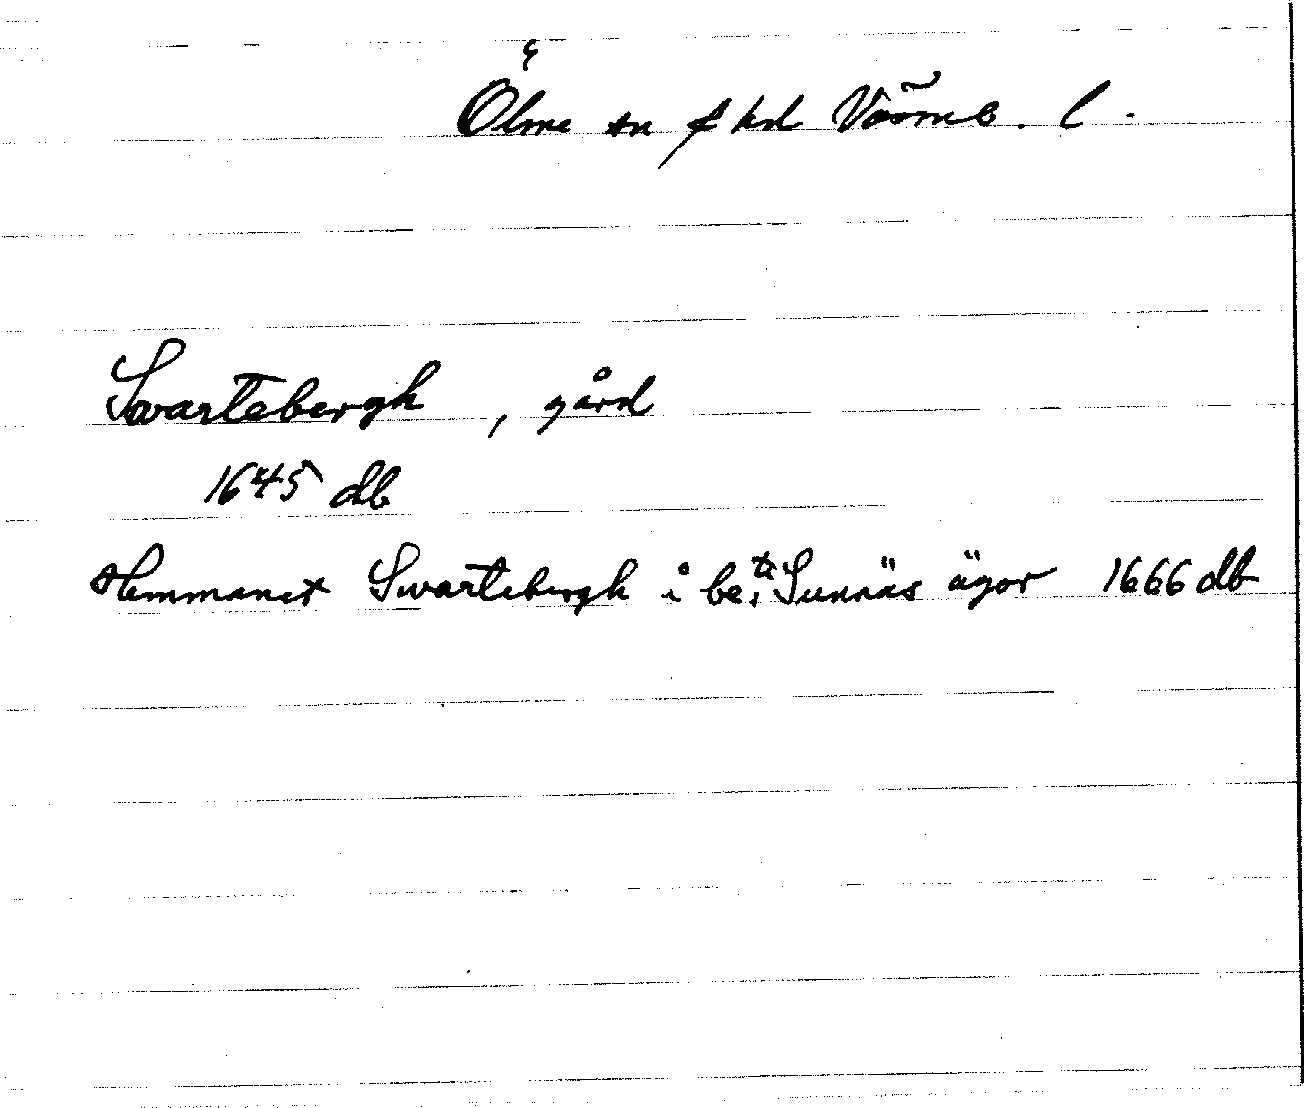 Ölme sn f hd Värml. l.
Swartebergh, gård
1645 db
Hemmanet Swartebergh i be:te Sunnäs ägor 1666 db